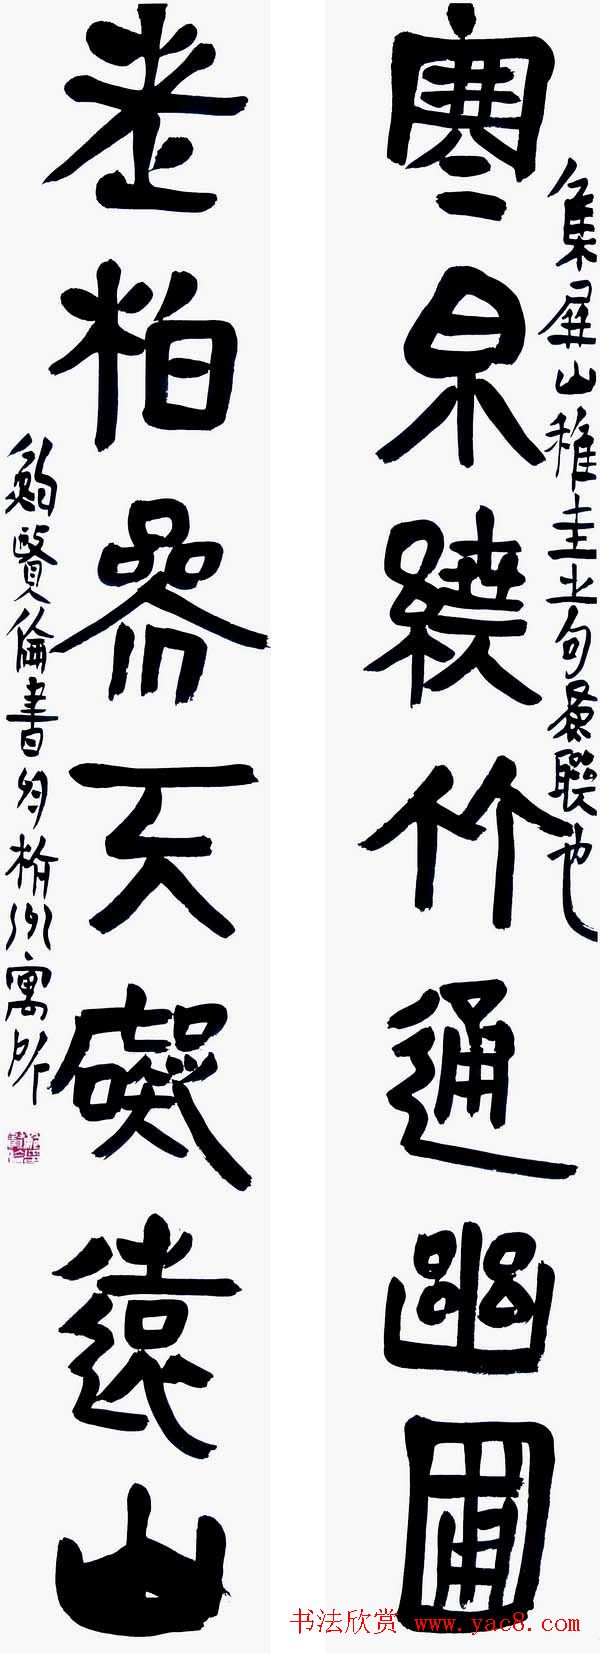 寒泉繞竹通幽圃
集屏山稚圭之句為聯也
老柏參天礙遠山
鮑賢倫書寓所
书法欣赏 www.yac8.com